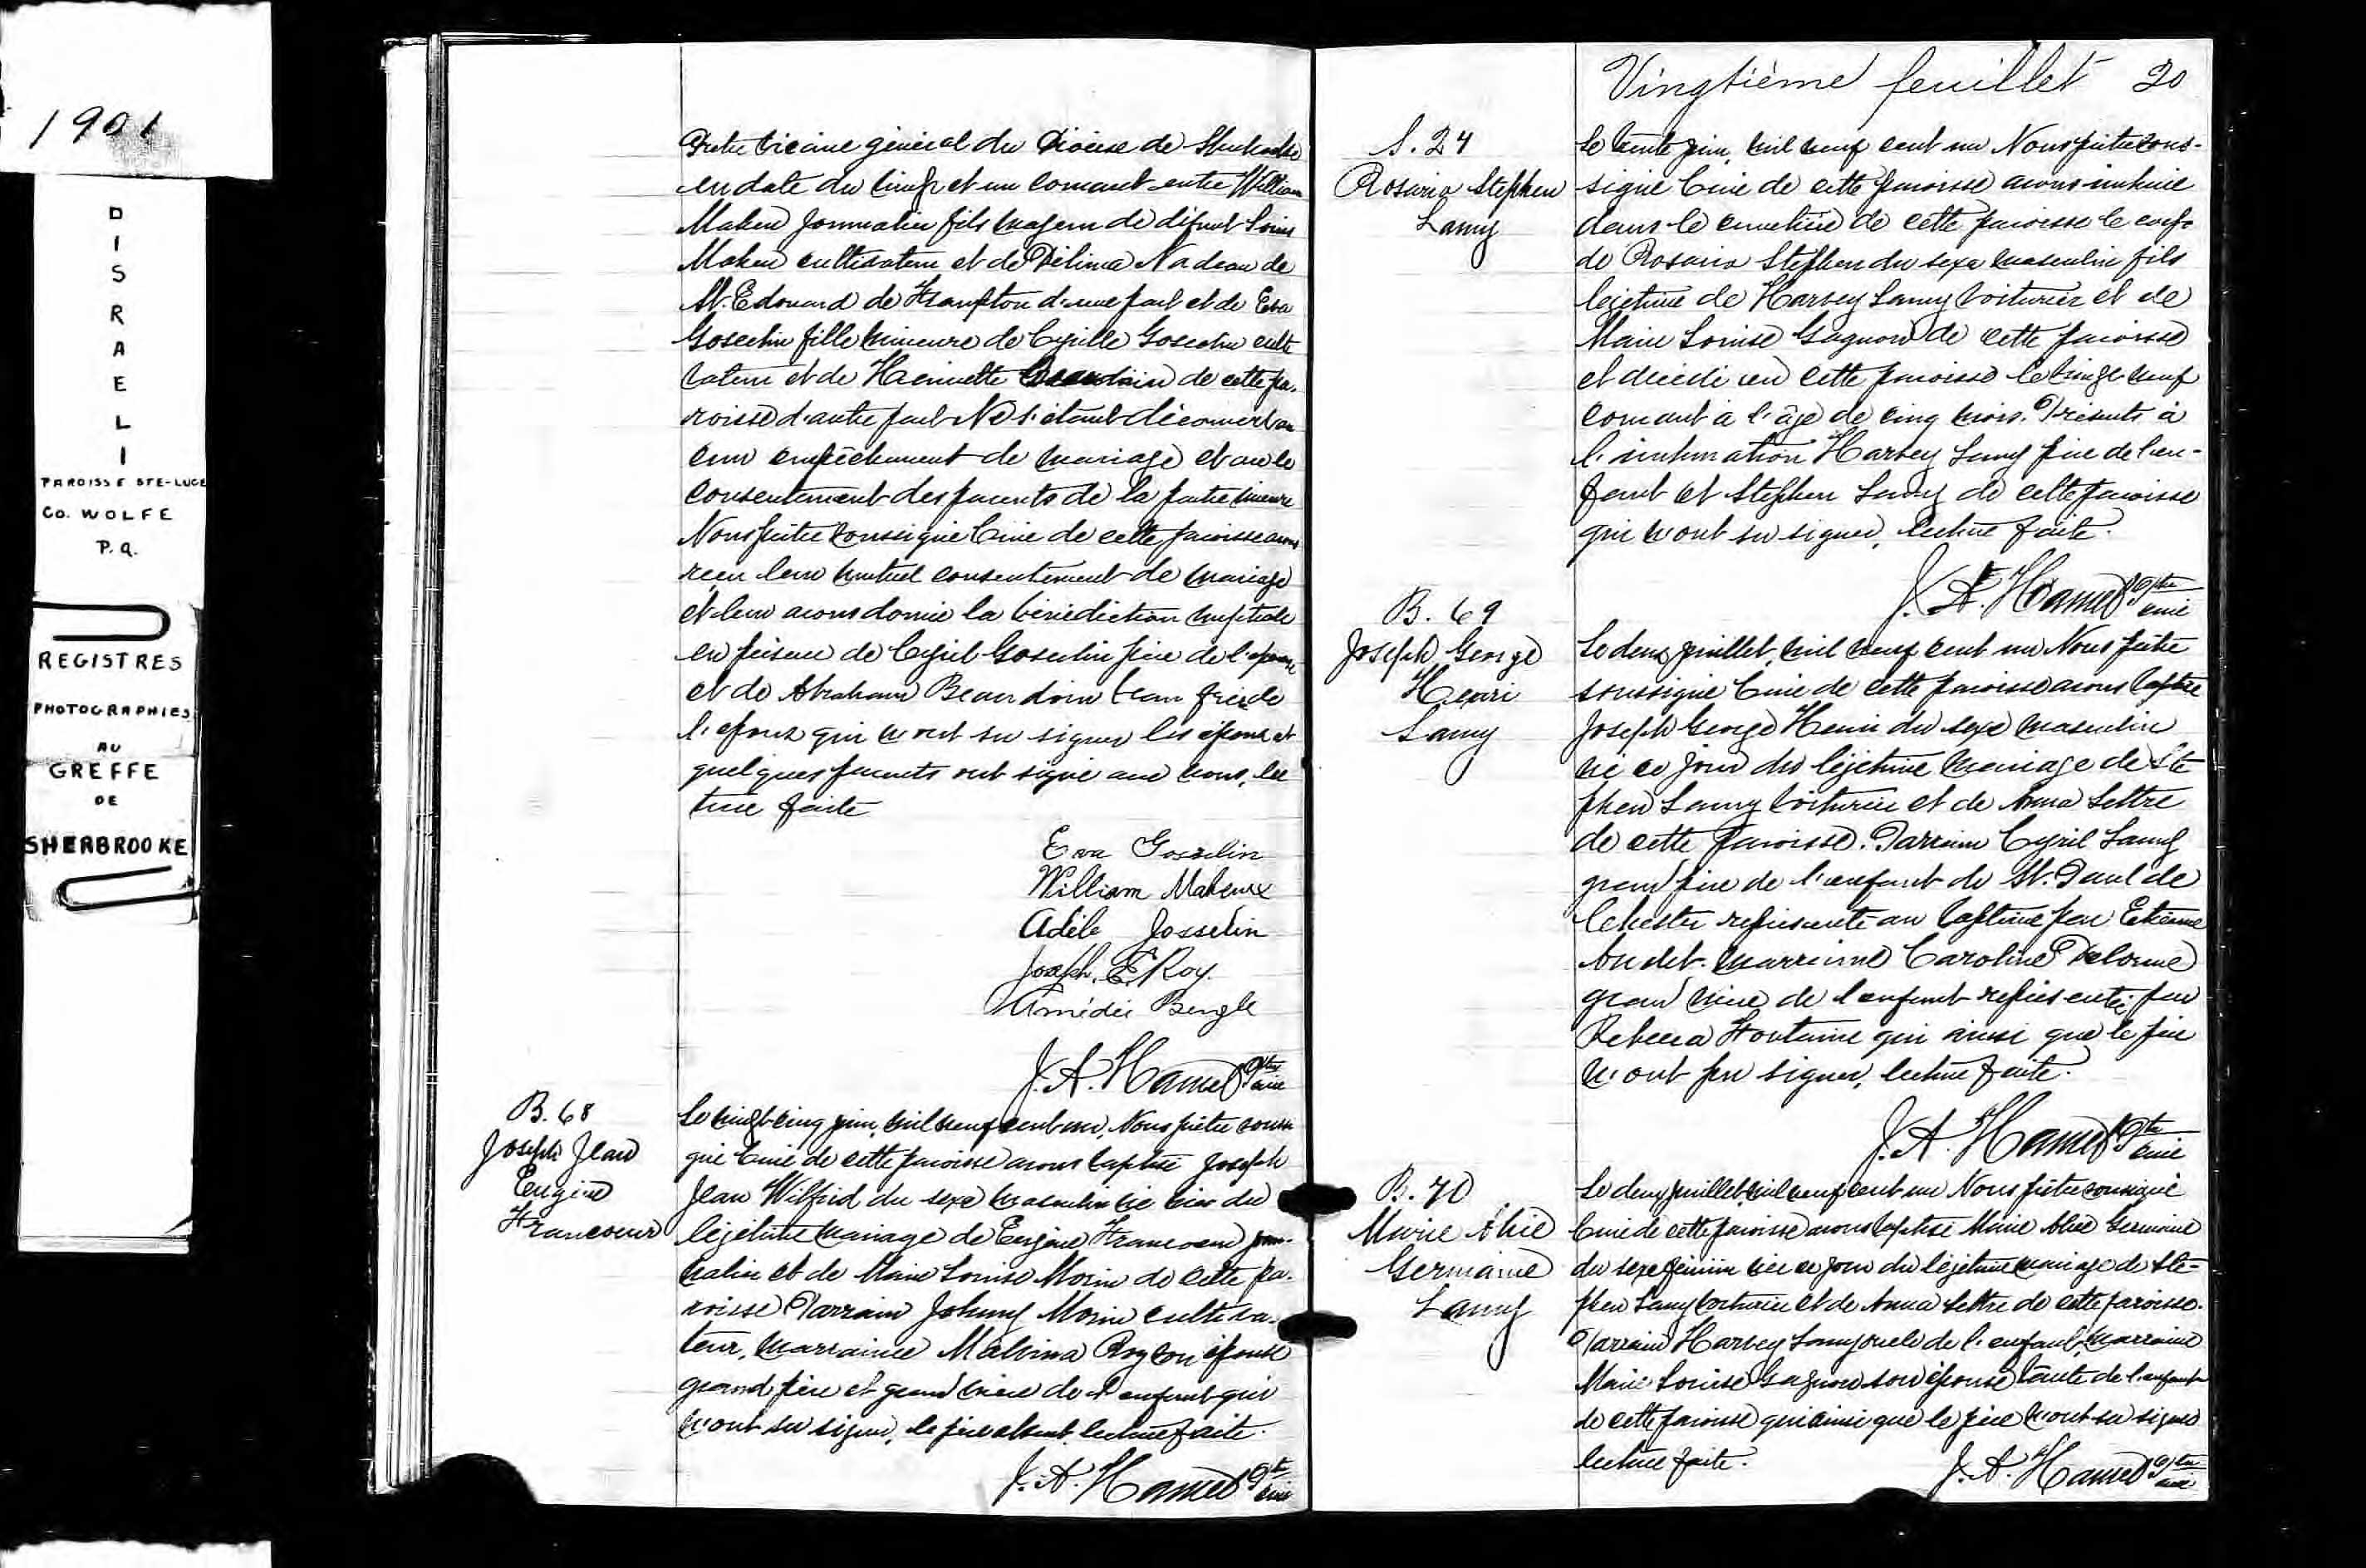 1901
DISRAELI
PAROISSE STE-LUCE
Co. WOLFE
P.Q.
REGISTRES
PHOTOGRAPHIES
AU
GREFFE
DE
SHERBROOKE
général du Diocèse de Sherbrooke
en date du vingt et un courant entre William
Maheu journalier fils majeur de défunt Louis
Maheu cultivateur et de Délima Nadeau de
St. Edouard de Frampton d'une part et de Eva
Gosselin fille mineure de Cyrille Gosselin culti
vateur et de Henriette Beaudoin de cette pa-
roisse d'autre part Ne s'étant découvert au
cun empêchement de mariage et avec le
consentement des parents de la partie mineure
Nous prêtre soussigné Curé de cette paroisse avons
reçu leur mutuel consentement de mariage
et leur avons donné la bénédiction nuptiale
en présence de Cyril Gosselin père de l'épouse
et de Abraham Beaudoin beau frère de
l'époux qui n'ont su signer les époux et
quelques parents ont signé avec nous, lec
ture faite
Eva Gosselin
William Maheux
Adèle Josselin
Joseph. E. Roy.
Amédée Bengle
J. A. Hamel Ptre curé
B. 68
Joseph Jean
Eugène
Francoeur
Le vingt-cinq juin, mil neuf cent un, Nous prêtre soussi
gné Curé de cette paroisse avons baptisé Joseph
Jean Wilfrid du sexe masculin né hier du
légitime mariage de Eugène Francoeur jour-
nalier et de Marie Louise Morin de cette pa-
roisse Parrain Johnny Morin cultiva-
teur, marraine Malvina Roy son épouse
grand père et grand mère de l'enfant qui
n'ont su signer, le père absent, lecture faite.
J. A. Hamel Ptre curé
Vingtième feuillet 20
S. 24
Rosario Stephen
Lamy
Le trente juin, mil neuf cent un Nous prêtre sous-
signé Curé de cette paroisse avons inhumé
dans le cimetière de cette paroisse le corps
de Rosario Stephen du sexe masculin fils
légitime de Harvey Lamy voiturier et de
Marie Louise Gagnon de cette paroisse
et décédé en cette paroisse le vingt neuf
courant à l'âge de cinq mois. Présents à
l'inhumation Harvey Lamy père de l'en-
fant et Stephen Lamy de cette paroisse
qui n'ont su signer, lecture faite.
J. A. Hamel Ptre curé
B. 69
Joseph George
Henri
Lamy
Le deux juillet, mil neuf cent un Nous prêtre
soussigné Curé de cette paroisse avons baptisé
Joseph George Henri du sexe masculin
né ce jour du légitime mariage de Ste
phen Lamy voiturier et de Anna Lettre
de cette paroisse. Parrain Cyril Lamy
grand père de l'enfant de St. Paul de
Chester représenté au baptême par Etienne
Audet. marraine Caroline Delorme
grand mère de l'enfant représentée par
Rebecca Fontaine qui ainsi que le père
n'ont pu signer, lecture faite.
J. A. Hamel Ptre curé
B. 70
Marie Alice
Germaine
Lamy
Le deux juillet, mil neuf cent un Nous prêtre soussigné
Curé de cette paroisse avons baptisé Marie Alice Germaine
du sexe féminin née ce jour du légitime mariage de Ste-
phen Lamy voiturier et de Anna Lettre de cette paroisse.
Parrain Harvey Lamy oncle de l'enfant, marraine
Marie Louise Gagnon son épouse tante de l'enfant
de cette paroisse qui ainsi que le père n'ont su signer
lecture faite.
J. A. Hamel Ptre curé